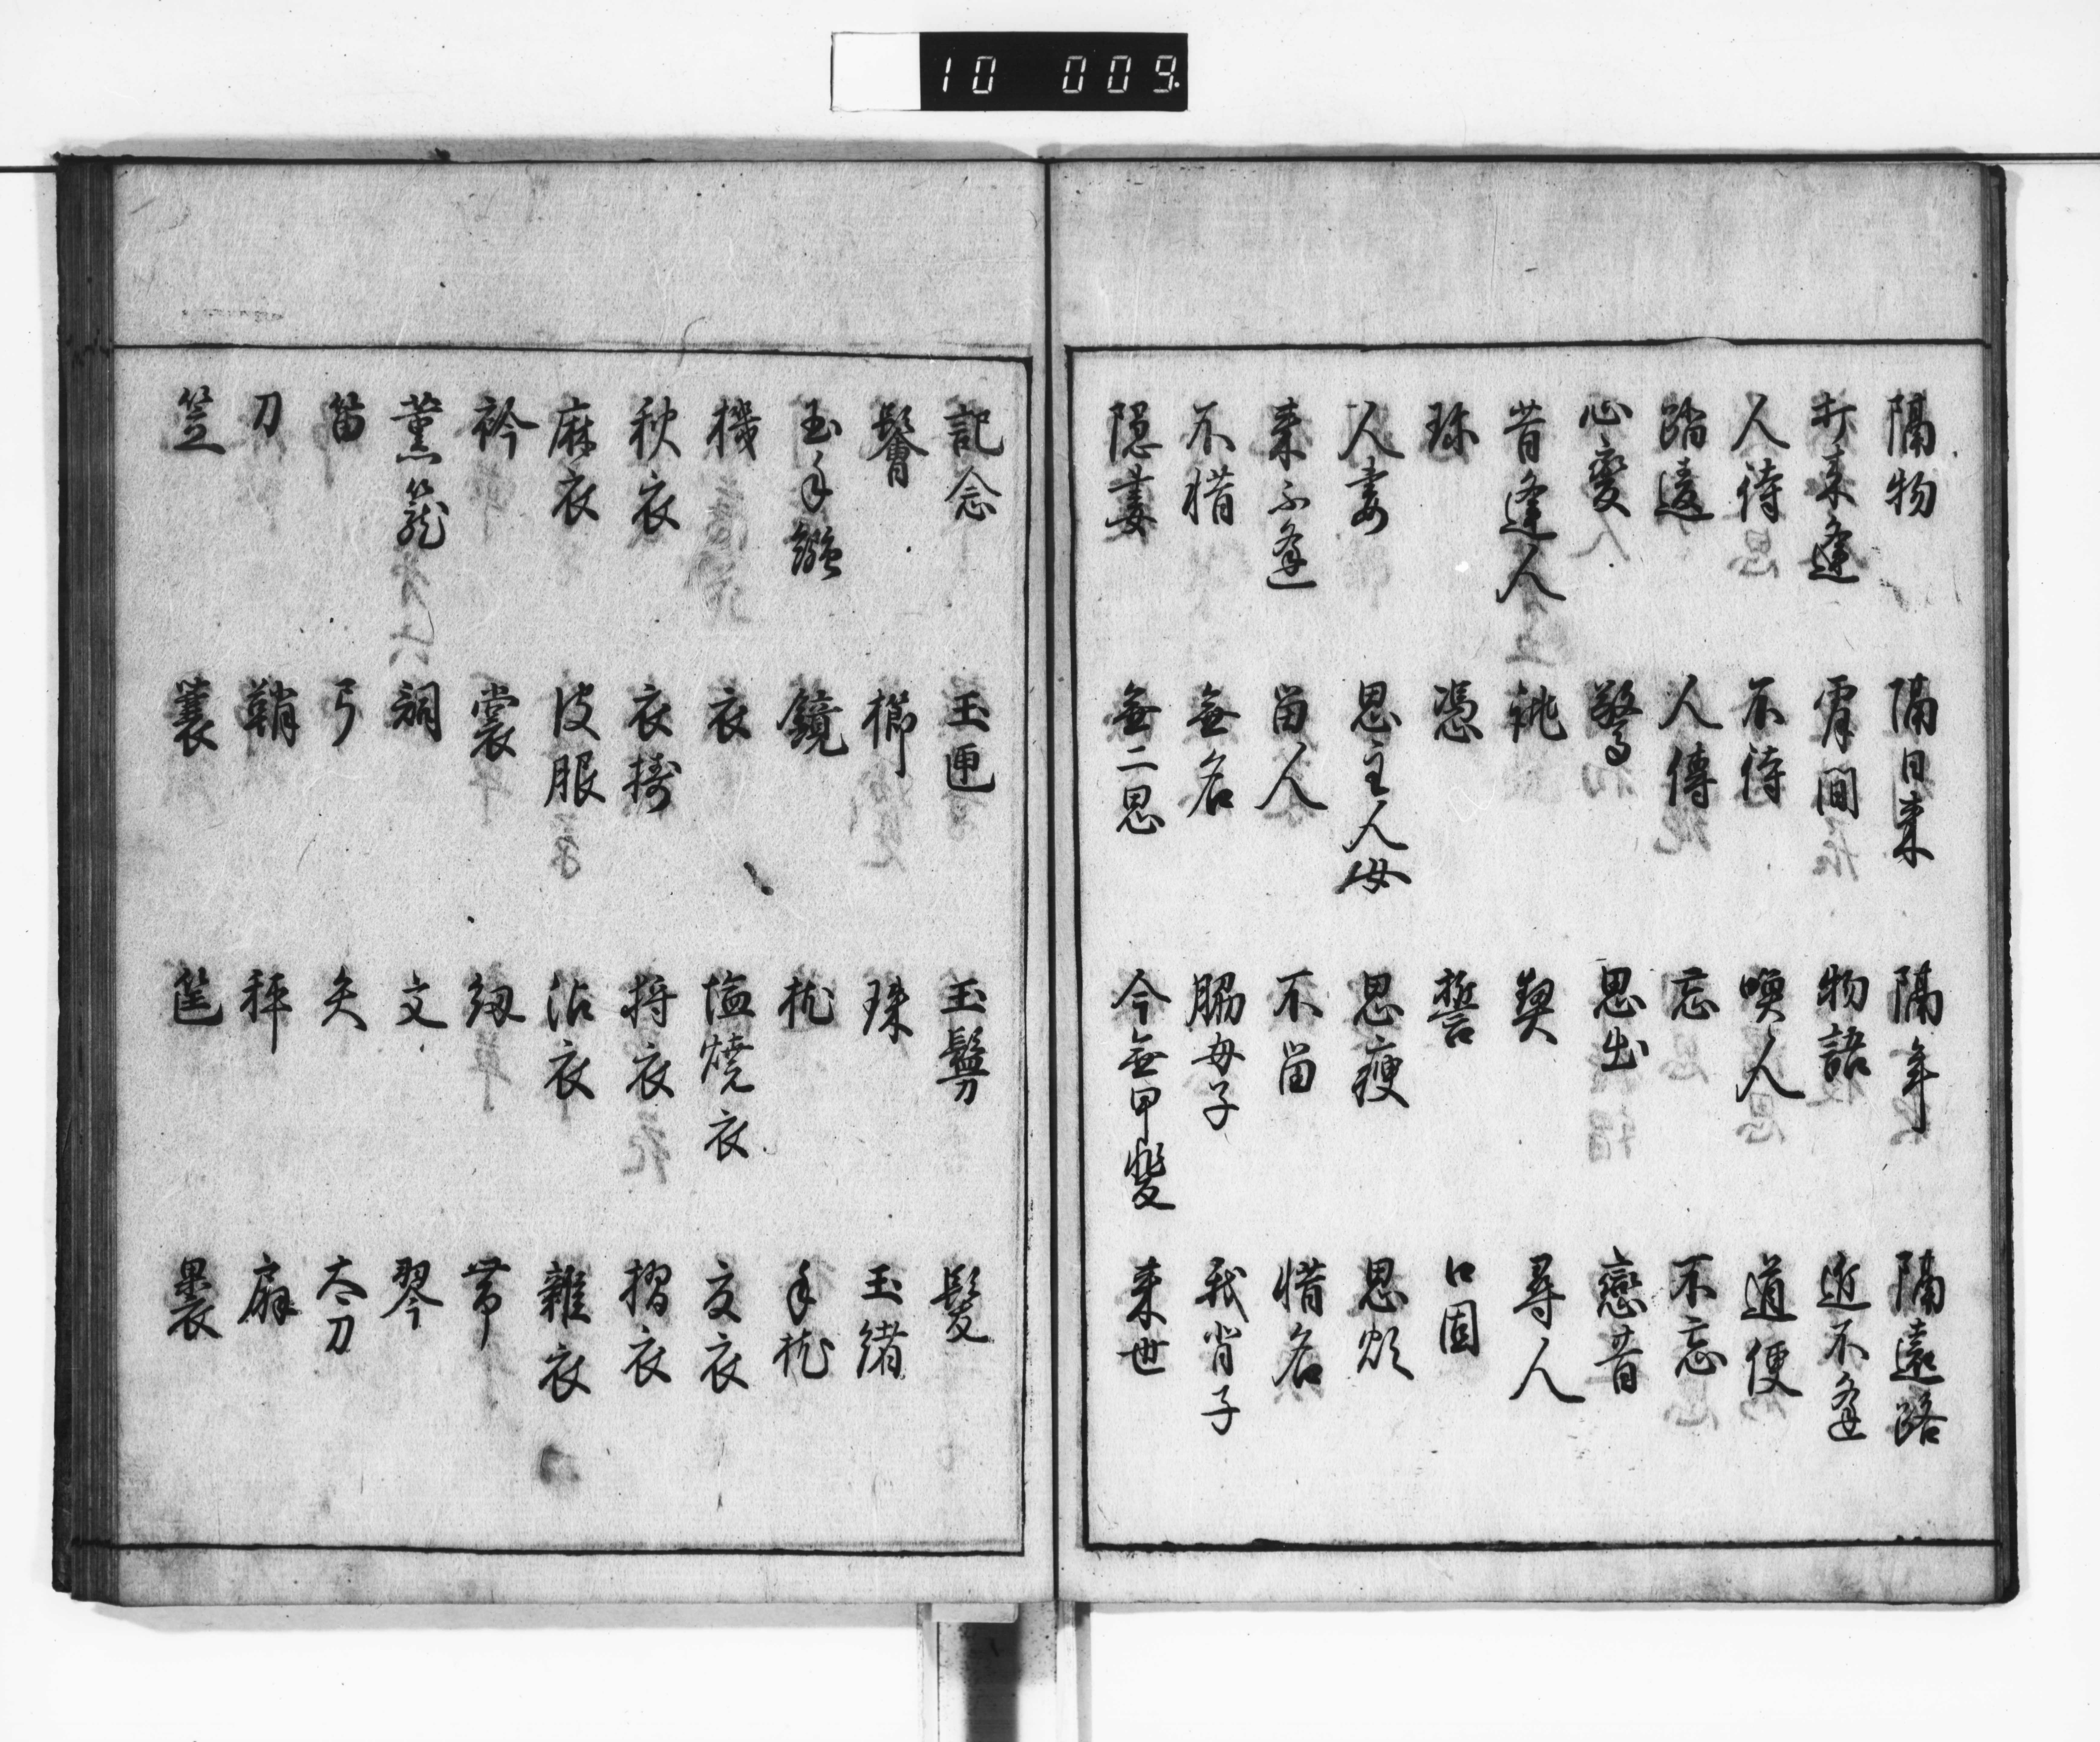 10 009
隔物 隔日来 隔年 隔遠路
打来逢 宵間 物語 近不逢
人待 不待 喚人 道便
踏違 人傳 忘 不忘
心變 驚 思出 戀昔
昔逢人 誂 契 尋人
弥 憑 誓 口固
人妻 思主人母 思痩 思煩
来不逢 留人 不留 惜名
不惜 無名 脇母子 我背子
隠妻 無二思 今無甲斐 来世
記念 玉匣 玉鬘 髪
鬢 櫛 珠 玉緒
玉手繦 鏡 枕 手枕
機 衣 塩焼衣 交衣
秋衣 衣擣 捋衣 摺衣
麻衣 皮服 沾衣 雑衣
衿 裳 紐 帯
薫籠 詞 文 琴
笛 弓 矢 太刀
刀 鞘 秤 扇
笠 蓑 筐